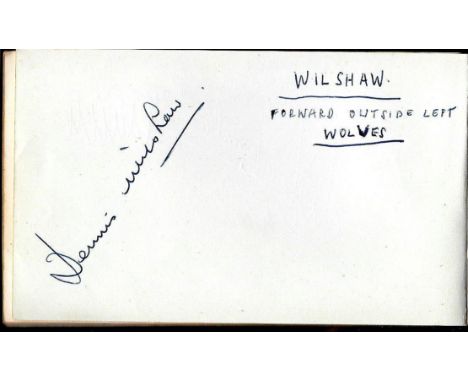 WILSHAW.
FORWARD OUTSIDE LEFT
WOLVES
Dennis Wilshaw.